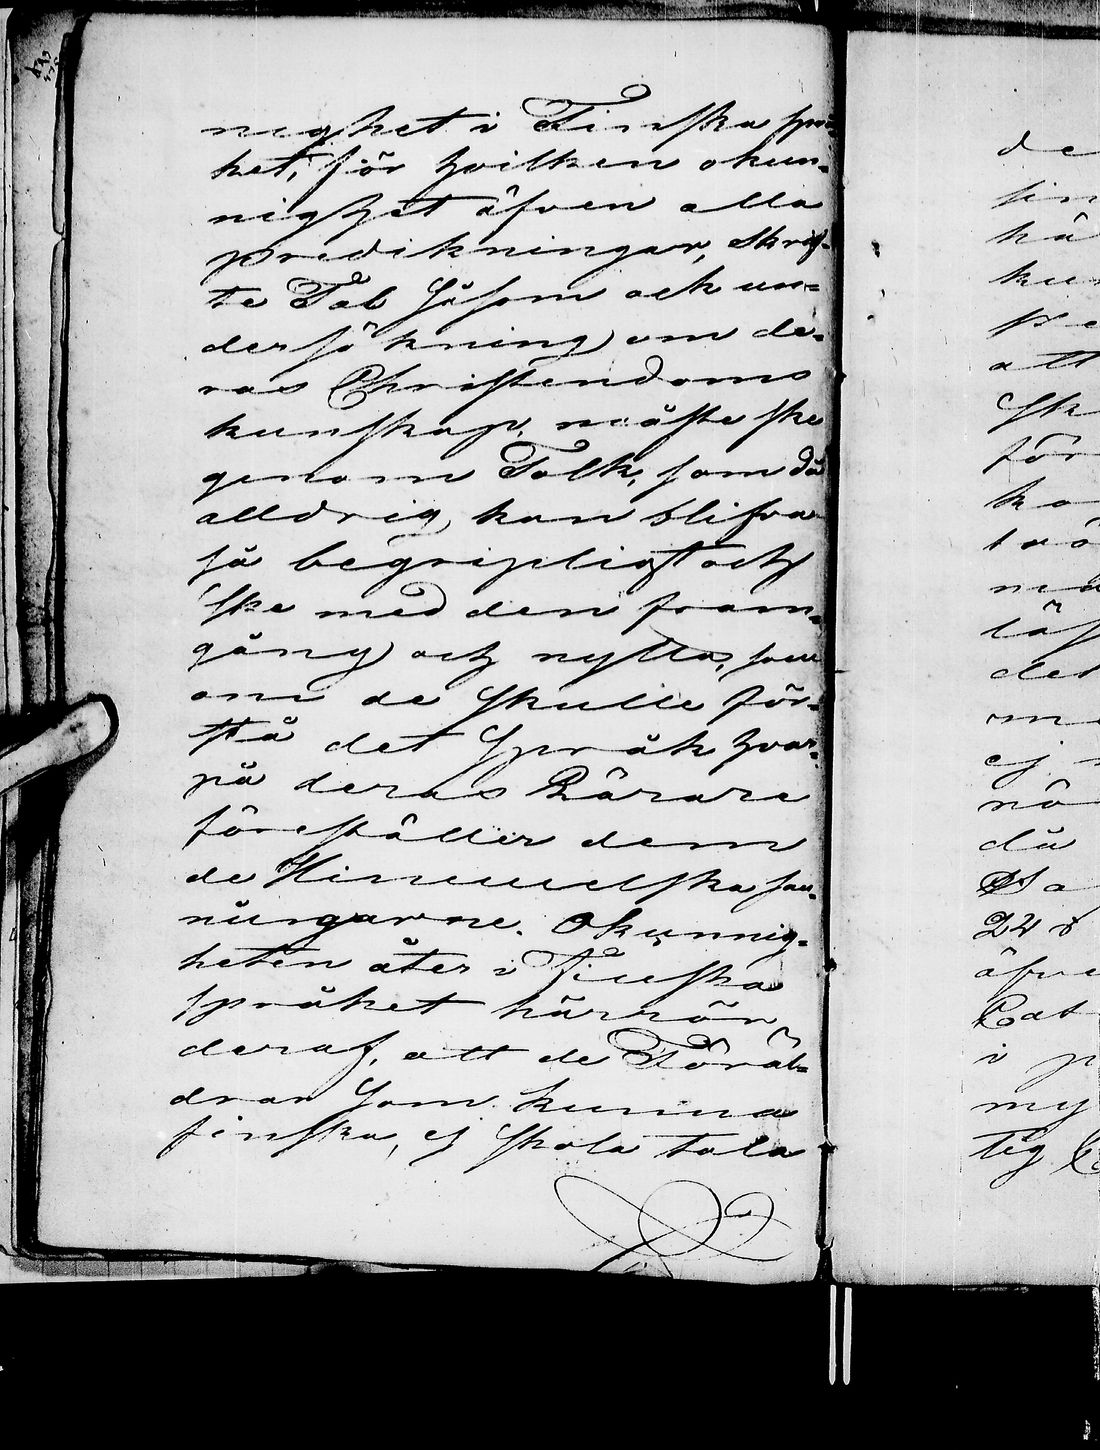 nighet i Finska språ-
ket, för hvilken okun-
nighet äfven alla
predikningar, Skrif-
te Tal såsom ock un-
dersökning om de-
ras Christendoms
kunskap, måste ske
genom Tolk, som då
alldrig kan blifva
så begripligt och
ske med den fram-
gång och nytta, som
om de skulle för-
stå det Språk hvar-
på deras Lärare
föreställer dem
de Himmelska san-
ningarne. Okunnig-
heten åter i Finska
språket härrör
deraf, att de Föräl-
drar som kunna
finska, ej skola tala
de
sin
hä
kun
att
sk
för
ka
trö
läs
det
om
ej
nö
då
24
äfve
Cat
i p
my
tig